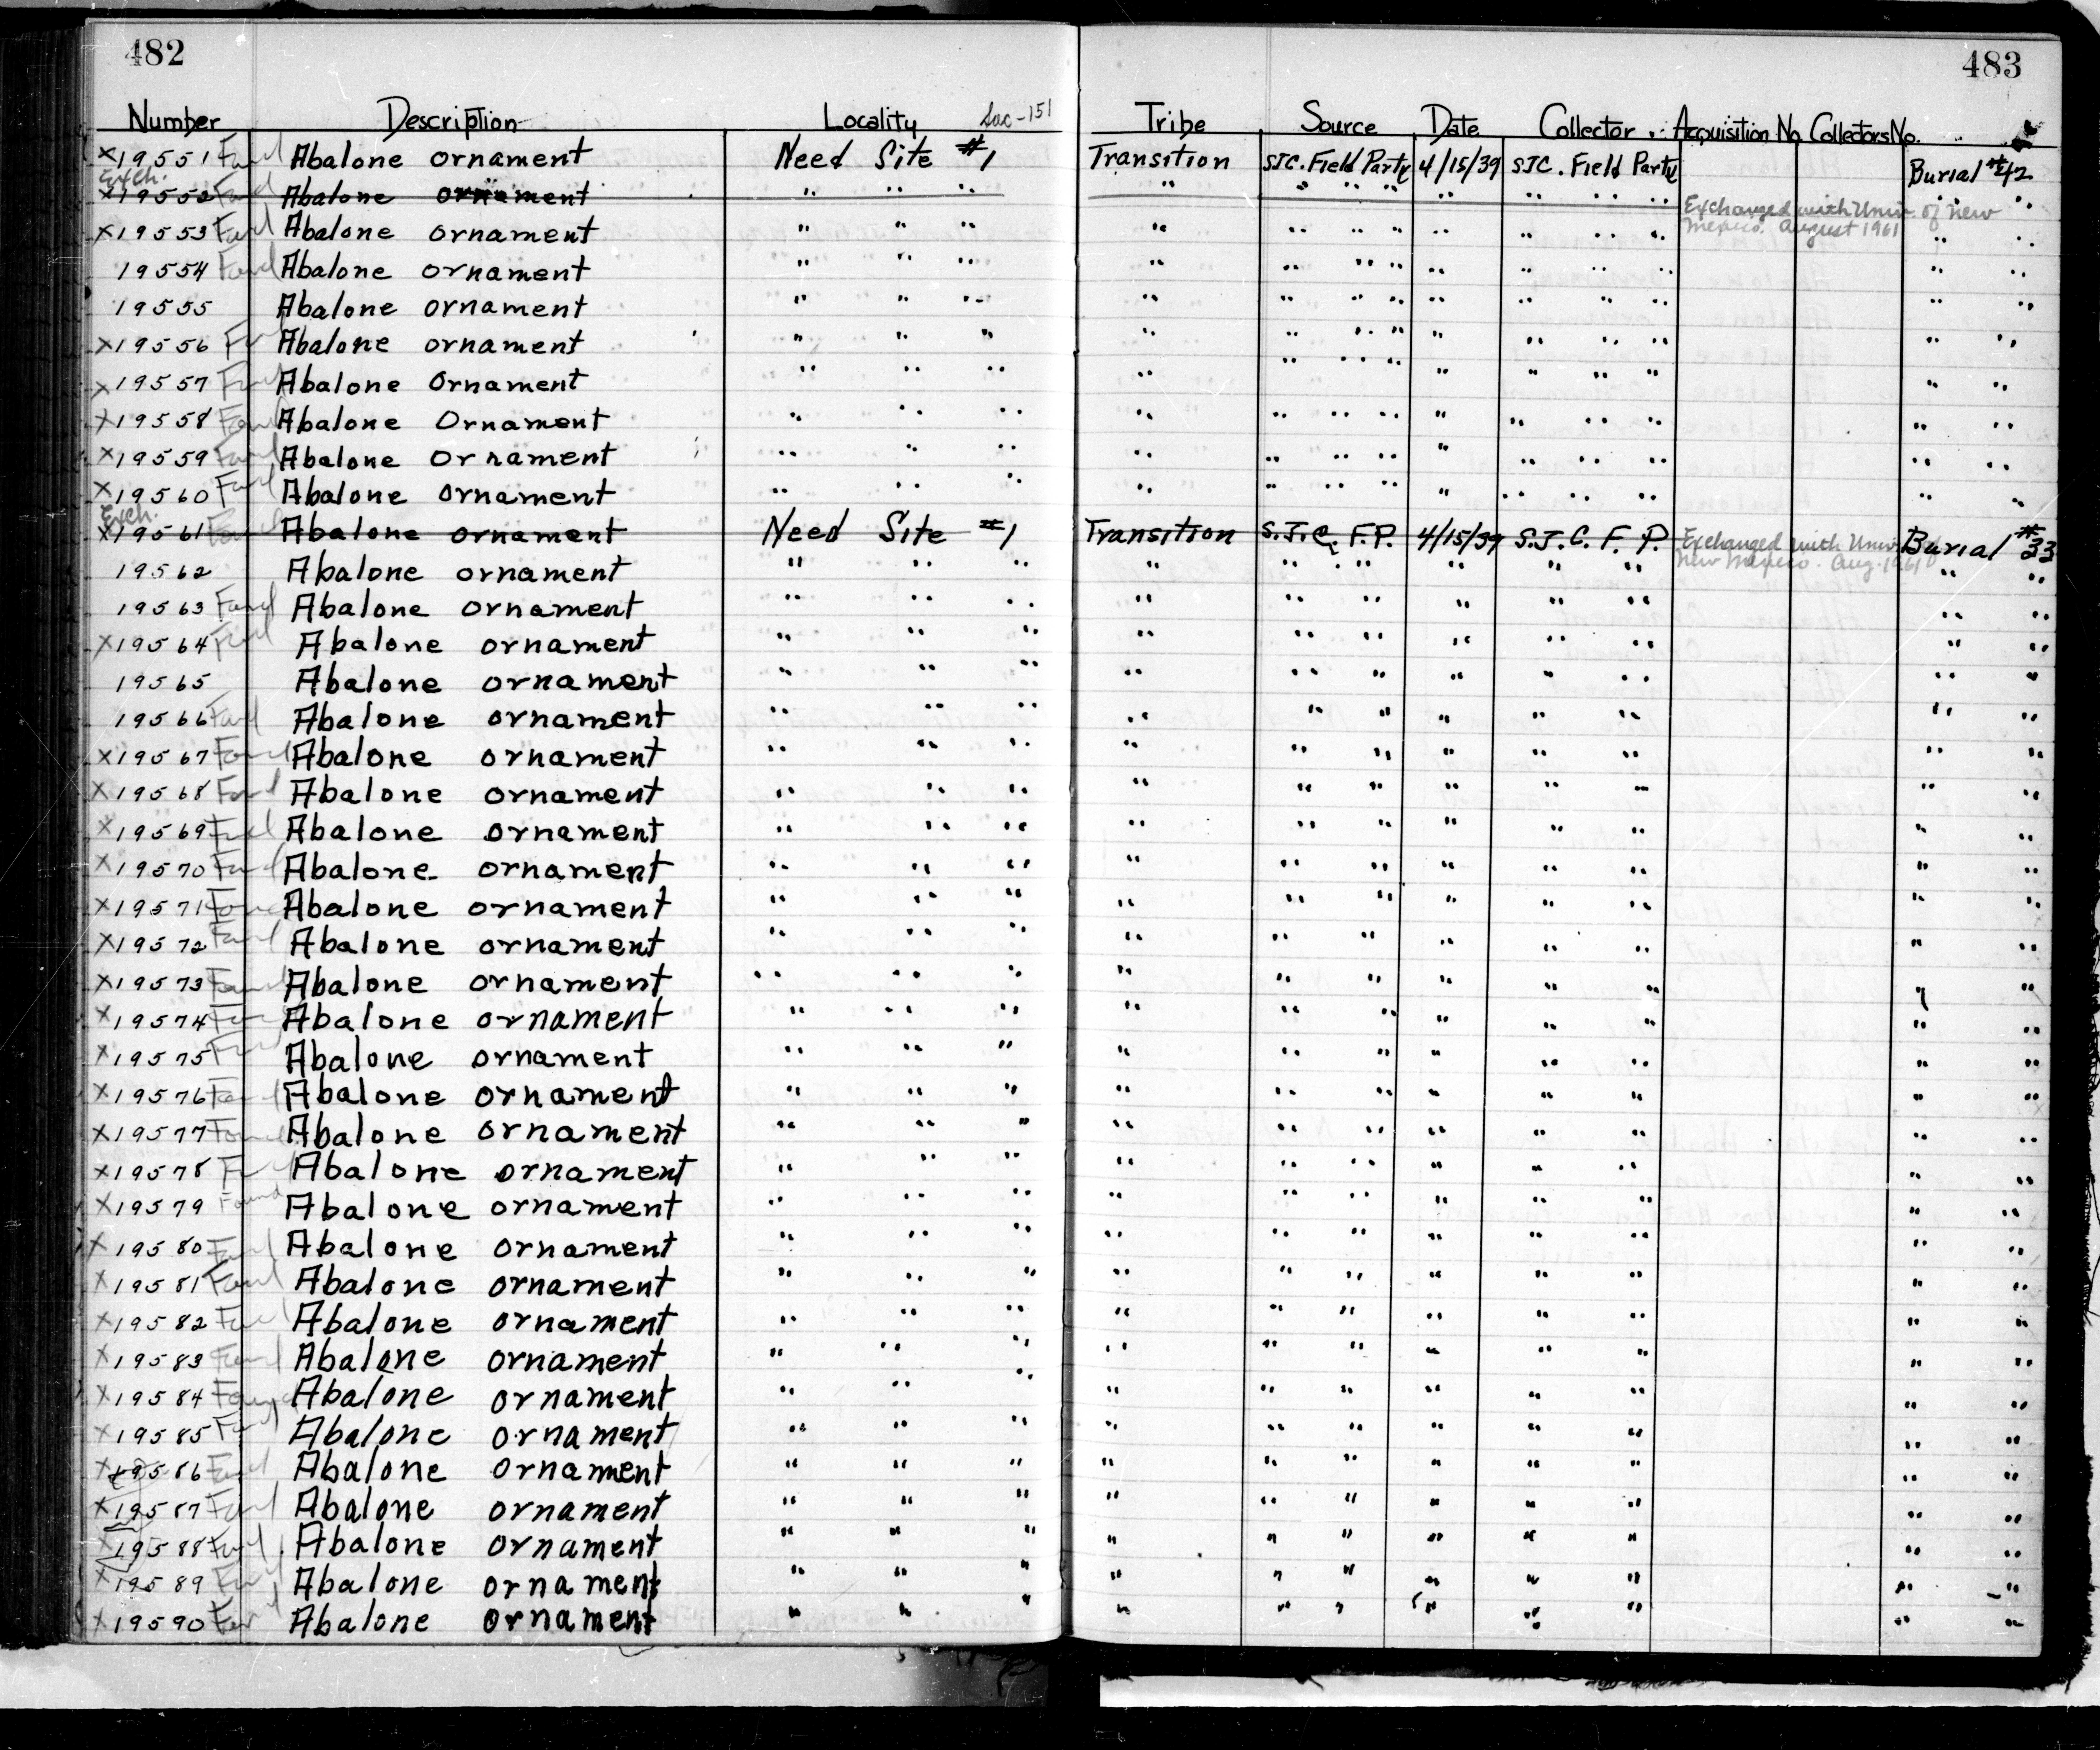 482 483
Number Description Locality Sac-151 Tribe Source Date Collector Acquisition No. Collectors No.
X19551 Found Abalone ornament Need Site #1 Transition SJC. Field Party 4/15/39 SJC. Field Party Burial #42
Exch.
X19552 Found Abalone ornament " " " " " " " " " " " " " "
Exchanged with Univ. of New
Mexico. August 1961
X19553 Found Abalone ornament " " " " " " " " " " " " "
19554 Found Abalone ornament " " " " " " " " " " " " "
19555 Abalone ornament " " " " " " " " " " " " "
X19556 Abalone ornament " " " " " " " " " " " " "
X19557 Abalone Ornament " " " " " " " " " " " " "
X19558 Found Abalone Ornament " " " " " " " " " " " " "
X19559 Found Abalone Ornament " " " " " " " " " " " " "
X19560 Found Abalone ornament " " " " " " " " " " " " "
Exch.
X19561 Found Abalone ornament Need Site #1 Transition S.J.C. F.P. 4/15/39 S.J.C. F. P. Exchanged with Univ. of Burial #33
New Mexico. Aug. 1961
19562 Abalone ornament " " " " " " " " " " " "
19563 Found Abalone ornament " " " " " " " " " " "
X19564 Found Abalone ornament " " " " " " " " " " "
19565 Abalone ornament " " " " " " " " " " "
19566 Found Abalone ornament " " " " " " " " " " "
X19567 Found Abalone ornament " " " " " " " " " " "
X19568 Found Abalone ornament " " " " " " " " " "
X19569 Found Abalone ornament " " " " " " " " " " "
X19570 Found Abalone ornament " " " " " " " " " " "
X19571 Found Abalone ornament " " " " " " " " " " "
X19572 Found Abalone ornament " " " " " " " " " " "
X19573 Found Abalone ornament " " " " " " " " " " "
X19574 Found Abalone ornament " " " " " " " " " " "
X19575 Found Abalone ornament " " " " " " " " " " "
X19576 Found Abalone ornament " " " " " " " " " " "
X19577 Found Abalone ornament " " " " " " " " " " "
X19578 Found Abalone ornament " " " " " " " " " " "
X19579 Found Abalone ornament " " " " " " " " " " "
X19580 Found Abalone ornament " " " " " " " " " " "
X19581 Found Abalone ornament " " " " " " " " " " "
X19582 Found Abalone ornament " " " " " " " " " " "
X19583 Found Abalone ornament " " " " " " " " " " "
X19584 Found Abalone ornament " " " " " " " " " " "
X19585 Found Abalone ornament " " " " " " " " " " "
X19586 Found Abalone ornament " " " " " " " " " " "
X19587 Found Abalone ornament " " " " " " " " " " "
X19588 Found Abalone ornament " " " " " " " " " " "
X19589 Found Abalone ornament " " " " " " " " " " "
X19590 Found Abalone ornament " " " " " " " " " " "